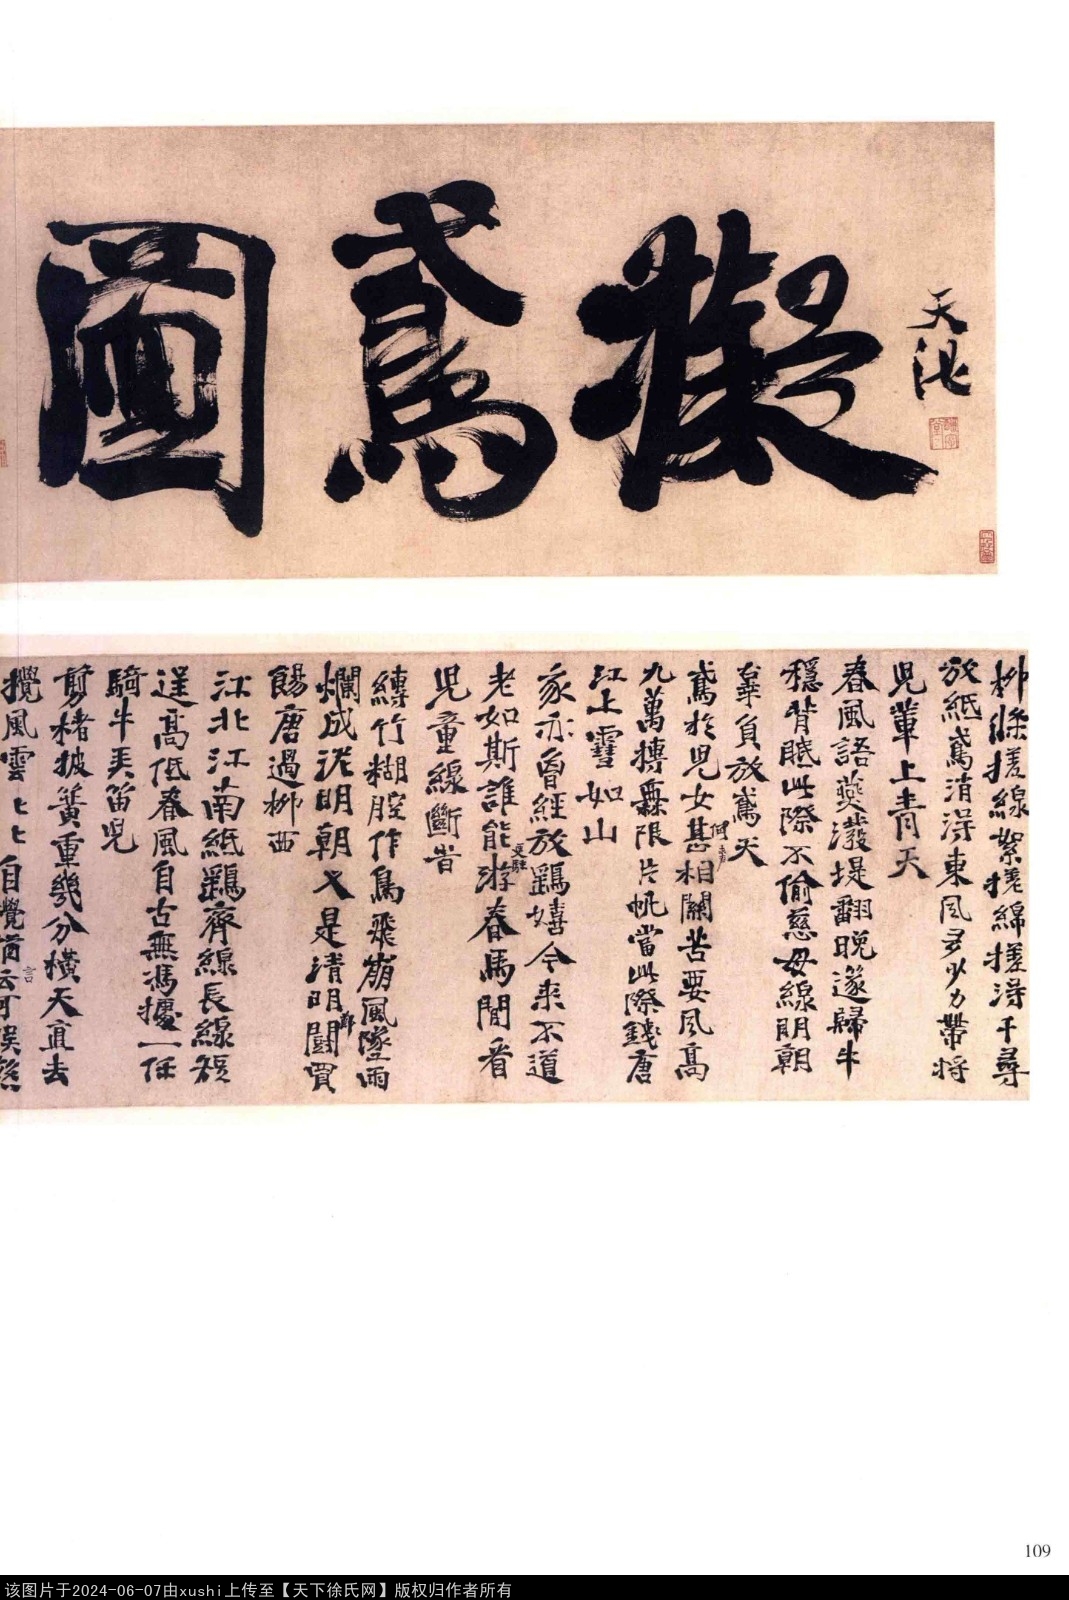 天池
擬鳶圖
柳條搓線絮搓綿搓得千尋
放紙鳶消得東風多少力帶將
兒輩上青天
春風語燕潑堤翻晚邃歸牛
穩背眠此際不偷慈母線明朝
辜負放鳶天
鳶於兒女甚相關苦要風高
九萬摶霧限片帆當此際錢唐
江上雪如山
我亦曾經放鷂嬉今來不道
老如斯誰能更駐游春馬閒看
兒童線斷昔
縳竹糊腔作鳥飛崩風墜雨
爛成泥明朝又是清明鬪買
餳唐過柳西
江北江南紙鷂齊線長線短
逞高低春風自古無馮據一任
騎牛弄笛兒
剪楮披簧重幾分橫天直去
攪風雲自覺
109
该图片于2024-06-07由xushi上传至【天下徐氏网】版权归作者所有